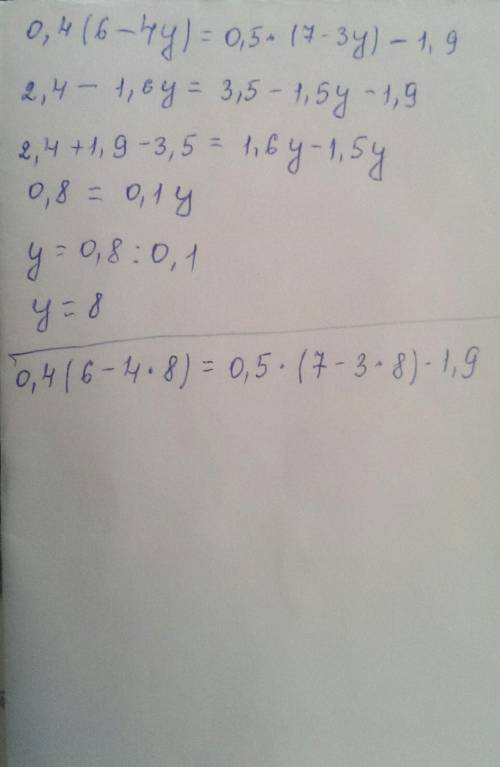 0,4(6-4y)=0,5·(7-3y)-1,9
2,4-1,6y=3,5-1,5y-1,9
2,4+1,9-3,5=1,6y-1,5y
0,8=0,1y
y=0,8:0,1
y=8
0,4(6-4·8)=0,5·(7-3·8)-1,9